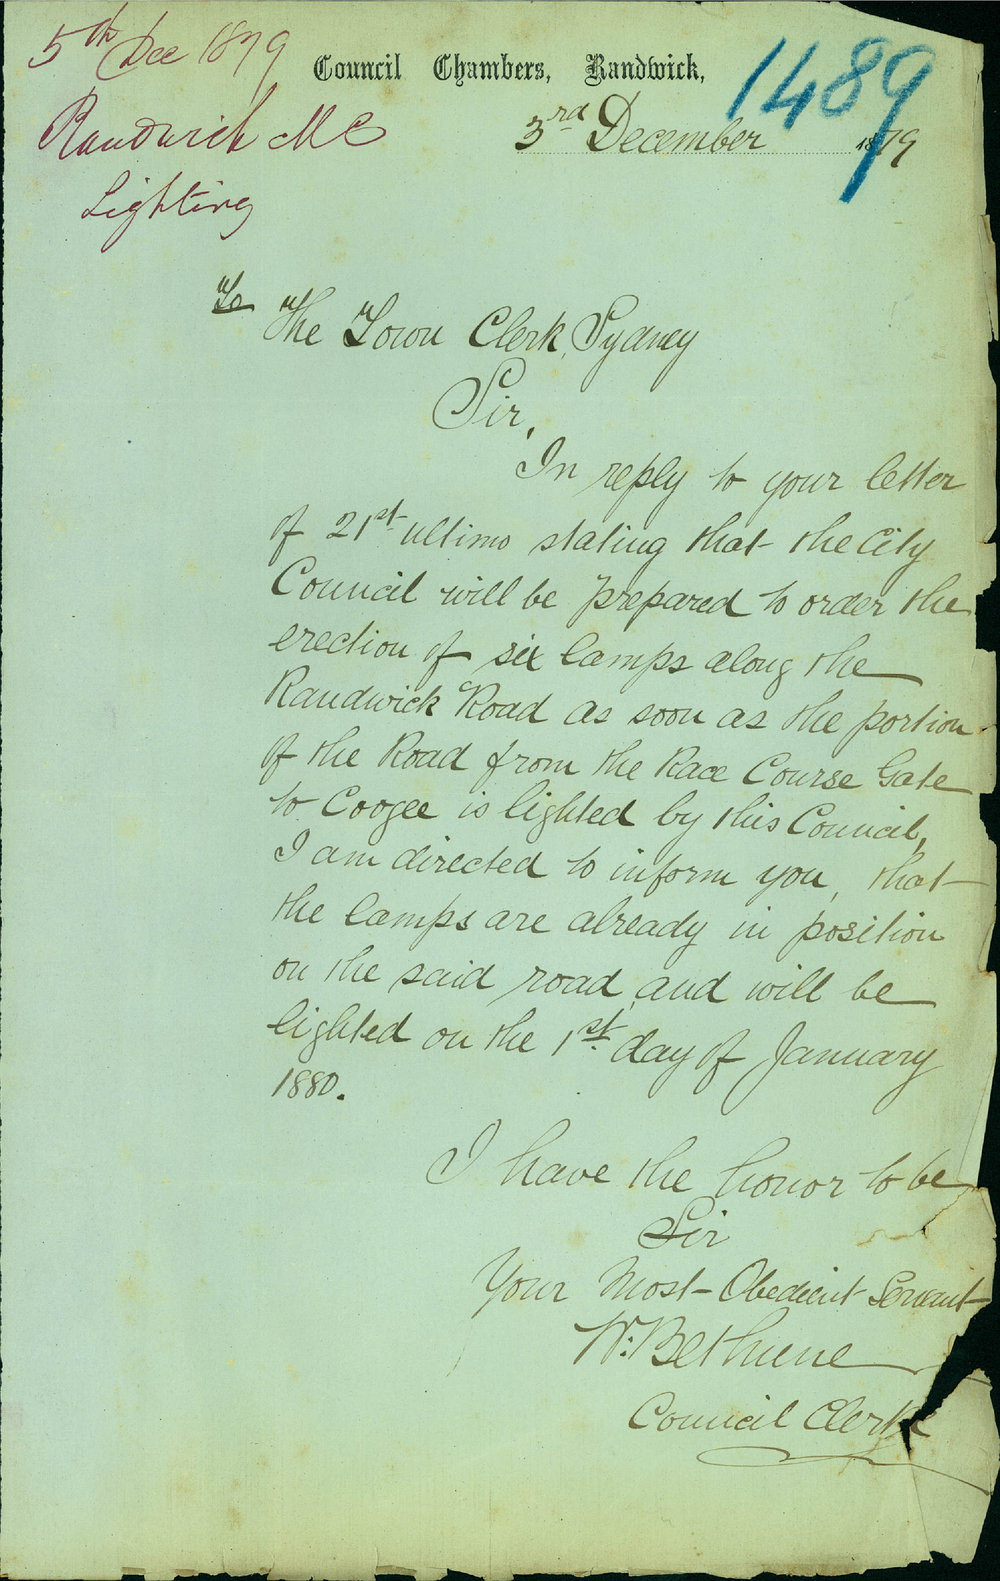 5th Dec 1879
Randwick M C
Lighting
1489
Council Chambers, Randwick,
3rd December 1879
To The Town Clerk, Sydney
Sir,
In reply to your letter
of 21st ultimo stating that the City
Council will be prepared to order the
erection of six lamps along the
Randwick Road as soon as the portion
of the Road from the Race Course Gate
to Coogee is lighted by this Council,
I am directed to inform you, that
the lamps are already in position
on the said road, and will be
lighted on the 1st day of January
1880.
I have the honor to be
Sir
Your Most Obedient Servant
W. Bethune
Council Clerk